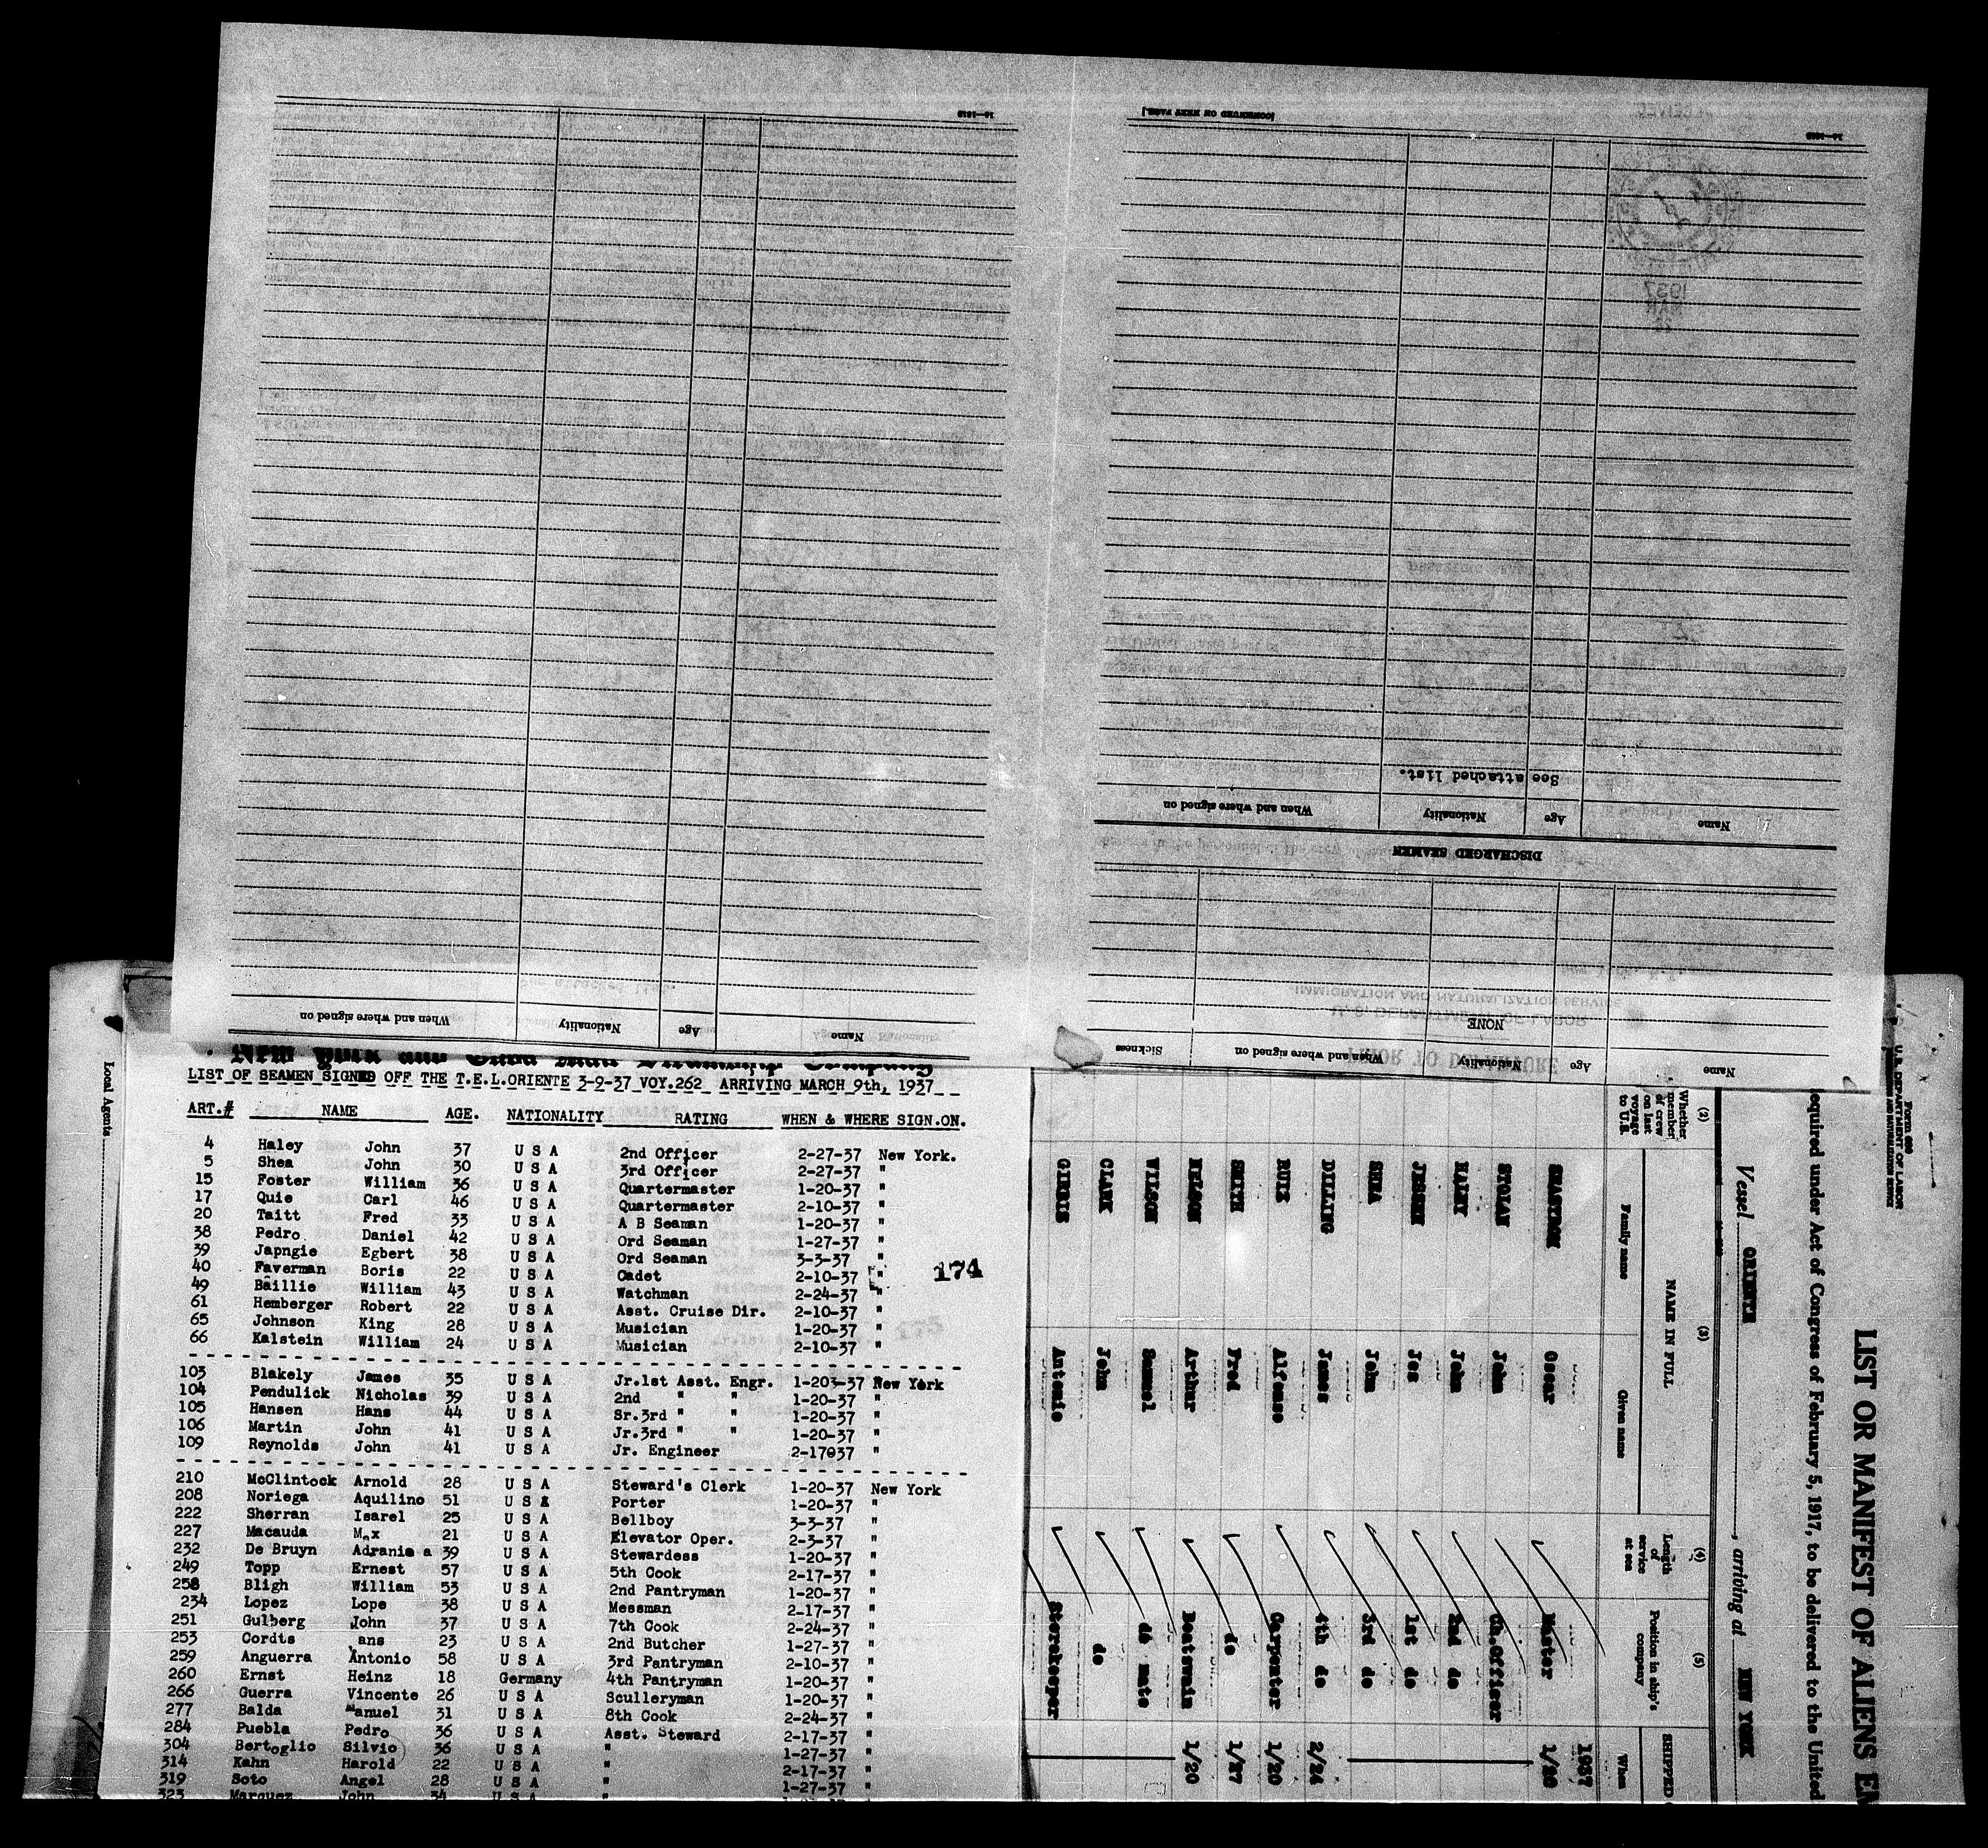 16—1619
[CONTINUED ON NEXT PAGE.]
16—1619
1937
MAR
See attached list.
When and where signed on
Nationality
Age
Name
DISCHARGED SEAMEN
IMMIGRATION AND NATURALIZATION SERVICE
U. S. DEPARTMENT OF LABOR
NONE
PRIOR TO DEPARTURE
Sickness
When and where signed on
Nationality
Age
Name
When and where signed on
Nationality
Age
Name
Local Agents
New York and Cuba Mail Steamship Company
LIST OF SEAMEN SIGNED OFF THE T.E.L.ORIENTE 3-9-37 VOY.262 ARRIVING MARCH 9th, 1937
ART.# NAME AGE. NATIONALITY RATING WHEN & WHERE SIGN.ON.
4 Haley John 37 U S A 2nd Officer 2-27-37 New York.
5 Shea John 30 U S A 3rd Officer 2-27-37 "
15 Foster William 36 U S A Quartermaster 1-20-37 "
17 Quie Carl 46 U S A Quartermaster 2-10-37 "
20 Taitt Fred 33 U S A A B Seaman 1-20-37 "
38 Pedro Daniel 42 U S A Ord Seaman 1-27-37 "
39 Japngie Egbert 38 U S A Ord Seaman 3-3-37 "
40 Faverman Boris 22 U S A Cadet 2-10-37 "
174
49 Baillie William 43 U S A Watchman 2-24-37 "
61 Hemberger Robert 22 U S A Asst. Cruise Dir. 2-10-37 "
65 Johnson King 28 U S A Musician 1-20-37 "
66 Kalstein William 24 U S A Musician 2-10-37 "
103 Blakely James 35 U S A Jr.1st Asst. Engr. 1-203-37 New York
104 Pendulick Nicholas 39 U S A 2nd " " 1-20-37 "
105 Hansen Hans 44 U S A Sr.3rd " " 1-20-37 "
106 Martin John 41 U S A Jr.3rd " " 1-20-37 "
109 Reynolds John 41 U S A Jr. Engineer 2-17037 "
210 McClintock Arnold 28 U S A Steward's Clerk 1-20-37 New York
208 Noriega Aquilino 51 U S A Porter 1-20-37 "
222 Sherran Isarel 25 U S A Bellboy 3-3-37 "
227 Macauda Max 21 U S A Elevator Oper. 2-3-37 "
232 De Bruyn Adranis a 39 U S A Stewardess 1-20-37 "
249 Topp Ernest 57 U S A 5th Cook 2-17-37 "
258 Bligh William 53 U S A 2nd Pantryman 1-20-37 "
234 Lopez Lope 38 U S A Messman 2-17-37 "
251 Gulberg John 37 U S A 7th Cook 2-24-37 "
253 Cordts ans 23 U S A 2nd Butcher 1-27-37 "
259 Anguerra Antonio 58 U S A 3rd Pantryman 2-10-37 "
260 Ernst Heinz 18 Germany 4th Pantryman 1-20-37 "
266 Guerra Vincente 26 U S A Sculleryman 1-20-37 "
277 Balda Manuel 31 U S A 8th Cook 2-24-37 "
284 Puebla Pedro 36 U S A Asst. Steward 2-17-37 "
304 Bertoglio Silvio 36 U S A " 1-27-37 "
314 Kahn Harold 22 U S A " 2-17-37 "
319 Soto Angel 28 U S A " 1-27-37 "
323 Marquez John 34 U S A "
Form 680
U.S. DEPARTMENT OF LABOR
IMMIGRATION AND NATURALIZATION SERVICE
LIST OR MANIFEST OF ALIENS EM
required under Act of Congress of February 5, 1917, to be delivered to the United
Vessel ORIENTE, arriving at NEW YORK
(2) (3) (4) (5)
Whether member of crew on last voyage to U.S.
NAME IN FULL
Family name Given name
Length of service at sea
Position in ship's company
SHIPPED
When
1937
Oscar Master 1/20
STOLAN John Ch.Officer
HALEY John 2nd do
JESSEN Jes 1st do
SHEA John 3rd do
DILLING James 4th do 2/24
RUIZ Alfonso Carpenter 1/20
SMITH Fred do 1/27
NELSON Arthur Boatswain 1/20
WILSON Samuel do mate
CLARK John do
GIBBIS Antonio Storekeeper